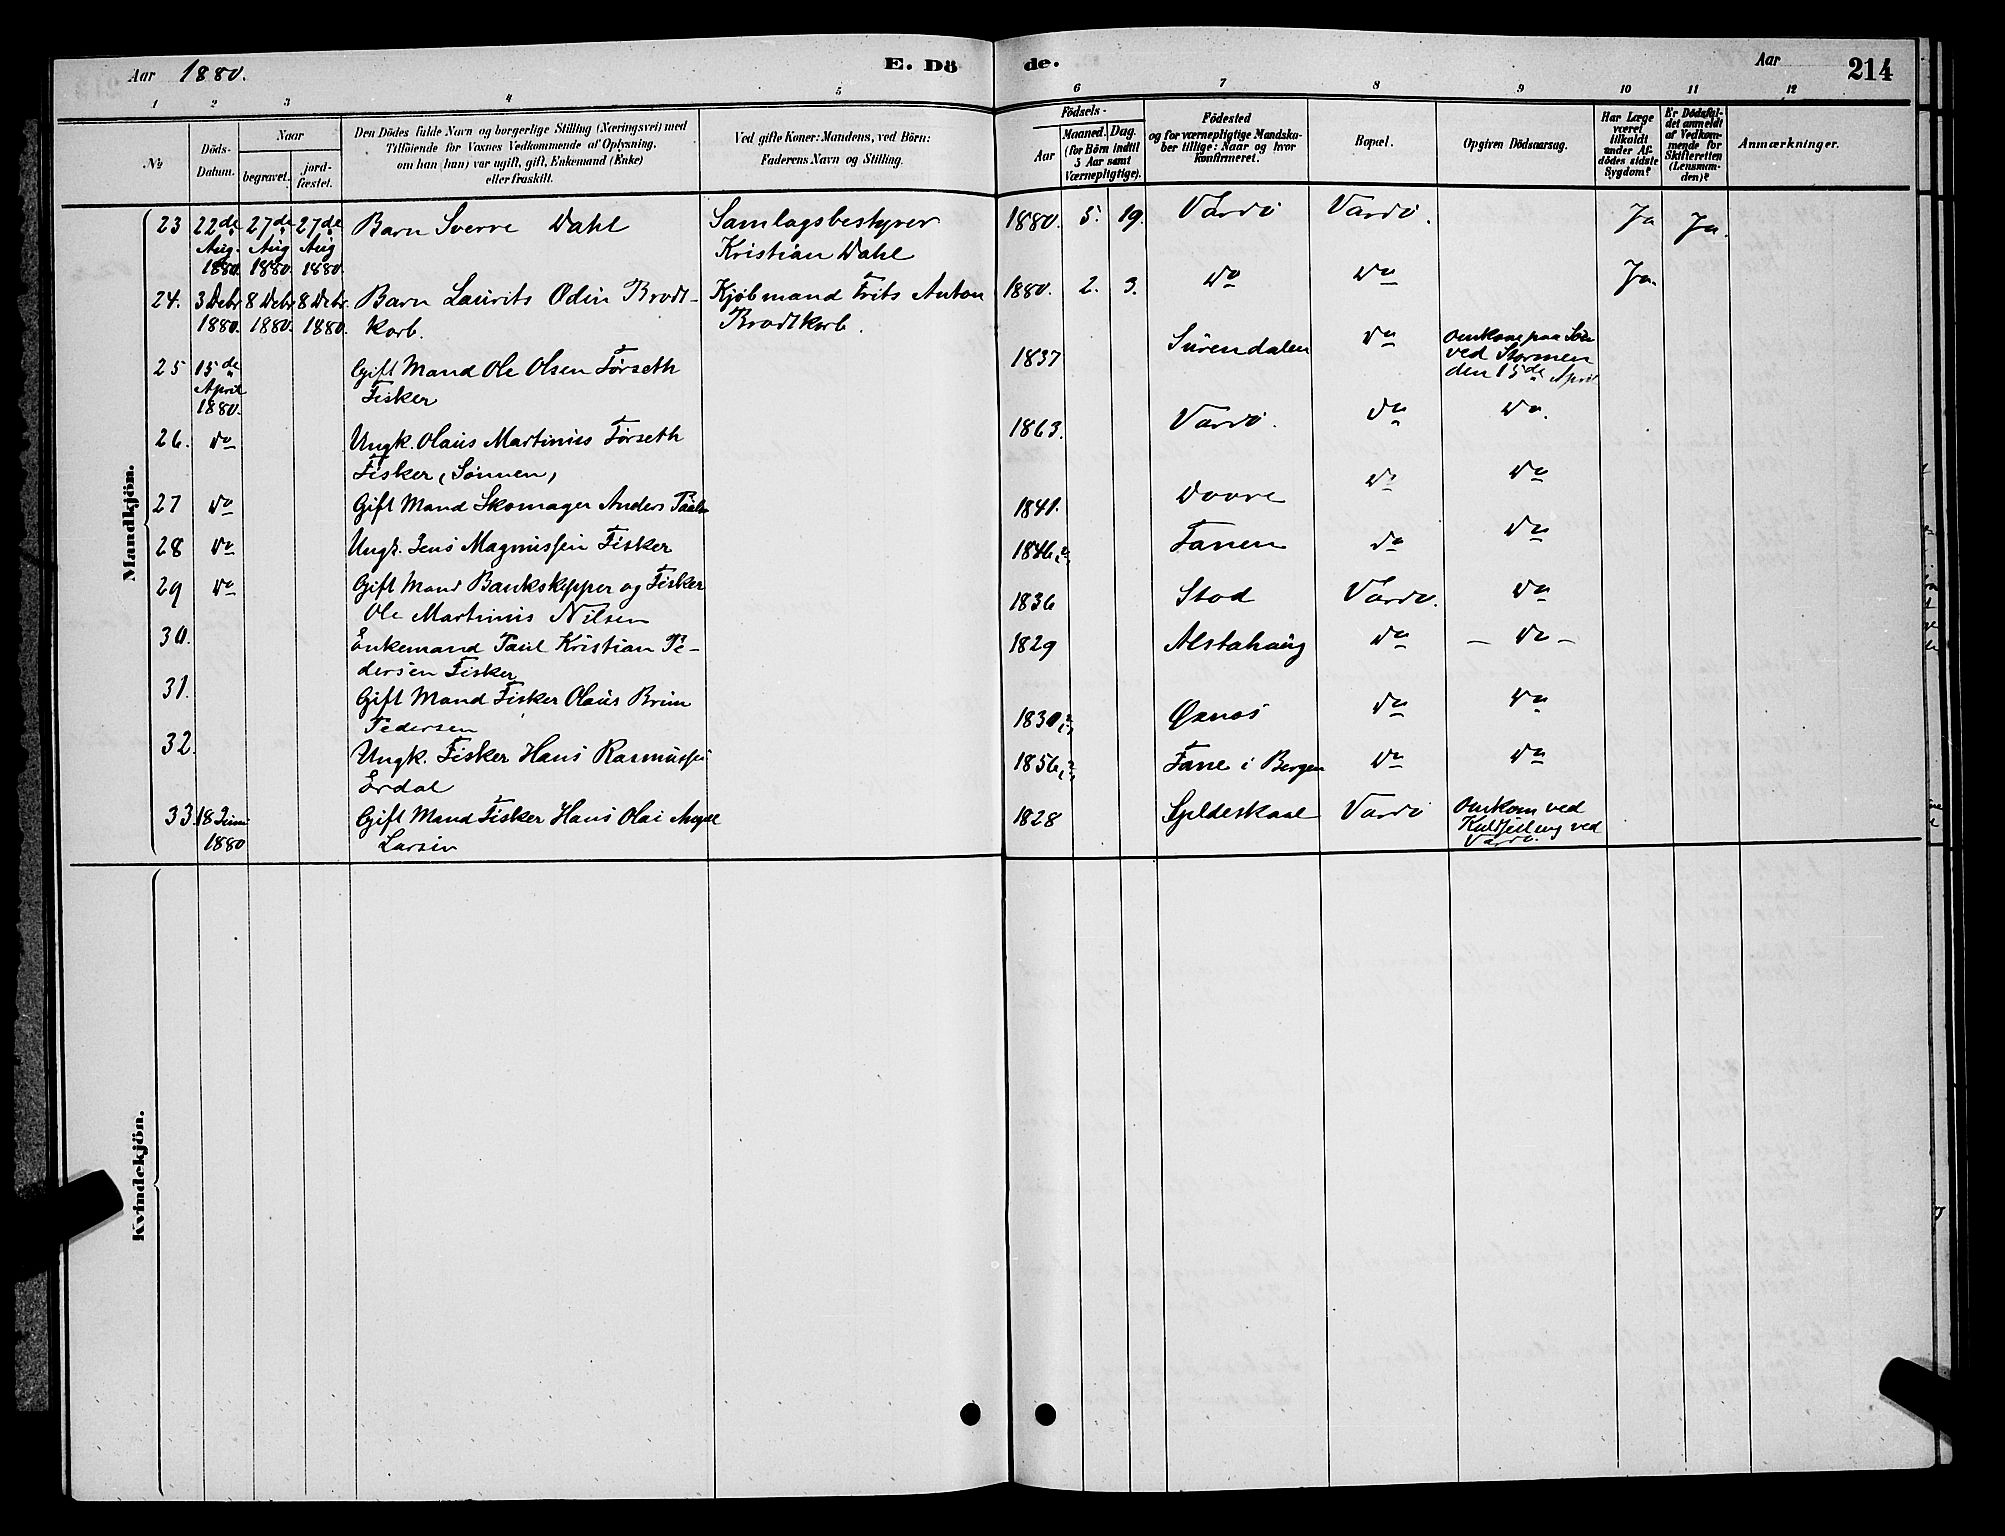 Aar 1880. E. Dö de. Aar 214
1 2 3 4 5 6 7 8 9 10 11 12
№
Döds-
Datum.
Naar
begravet.
jord-
fæstet.
Den Dödes fulde Navn og borgerlige Stilling (Næringsvei) med
Tilföiende for Voxnes Vedkommende af Oplysning,
om han (hun) var ugift, gift, Enkemand (Enke)
eller fraskilt.
Ved gifte Koner: Mandens, ved Börn:
Faderens Navn og Stilling.
Födsels-
Aar
Maaned. Dag.
(for Börn indtil
5 Aar samt
Værnepligtige).
Födested
og for værnepligtige Mandska-
ber tillige: Naar og hvor
konfirmeret.
Bopæl.
Opgiven Dödsaarsag.
Har Læge
været
tilkaldt
under Af-
dödes sidste
Sygdom?
Er Dödsfal-
det anmeldt
af Vedkom-
mende for
Skifteretten
(Lensman-
den)?
Anmærkninger.
Mandkjön.
23 22de 27de 27de Barn Sverre Dahl Samlagsbestyrer 1880. 5. 19. Vardö Vardö. Ja Ja.
Aug. Aug Aug Kristian Dahl
1880. 1880. 1880.
24. 3 Debr 8 Debr 8 Debr Barn Laurits Odin Brodt- Kjöbmand Frits Anton 1880. 2. 3. do do Ja.
1880. 1880. 1880. korb. Brodtkorb.
25 15de Gift Mand Ole Olsen Førseth 1837 Surendalen do Omkom paa Søen
April Fisker ved Stormen
1880. den 15de April
26. do Ungk. Olaus Martinius Førseth 1863. Vardö. do do.
Fisker (Sønnen)
27 do Gift Mand Skomager Anders 1841. Dovre do do
28 do Ungk. Jens Magnussen Fisker 1846 Fanen do do
29 do Gift Mand Baukskipper og Fisker 1836 Stod Vardö. do
Ole Martinus Nilsen
30. Enkemand Paul Kristian Pe- 1829 Alstahaug do – do –
dersen Fisker
31. Gift Mand Fisker Olaus Brun 1830 Øxnes do do
Pedersen
32. Ungk. Fisker Hans Rasmussen 1856 Fane i Bergen do do
Erdal
33. 18 Juni Gift Mand Fisker Hans Olai Angel 1828 Gjeldeskaal Vardö Omkom ved
1880 Larsen Kulseiling ved
Vardö.
Kvindekjön.